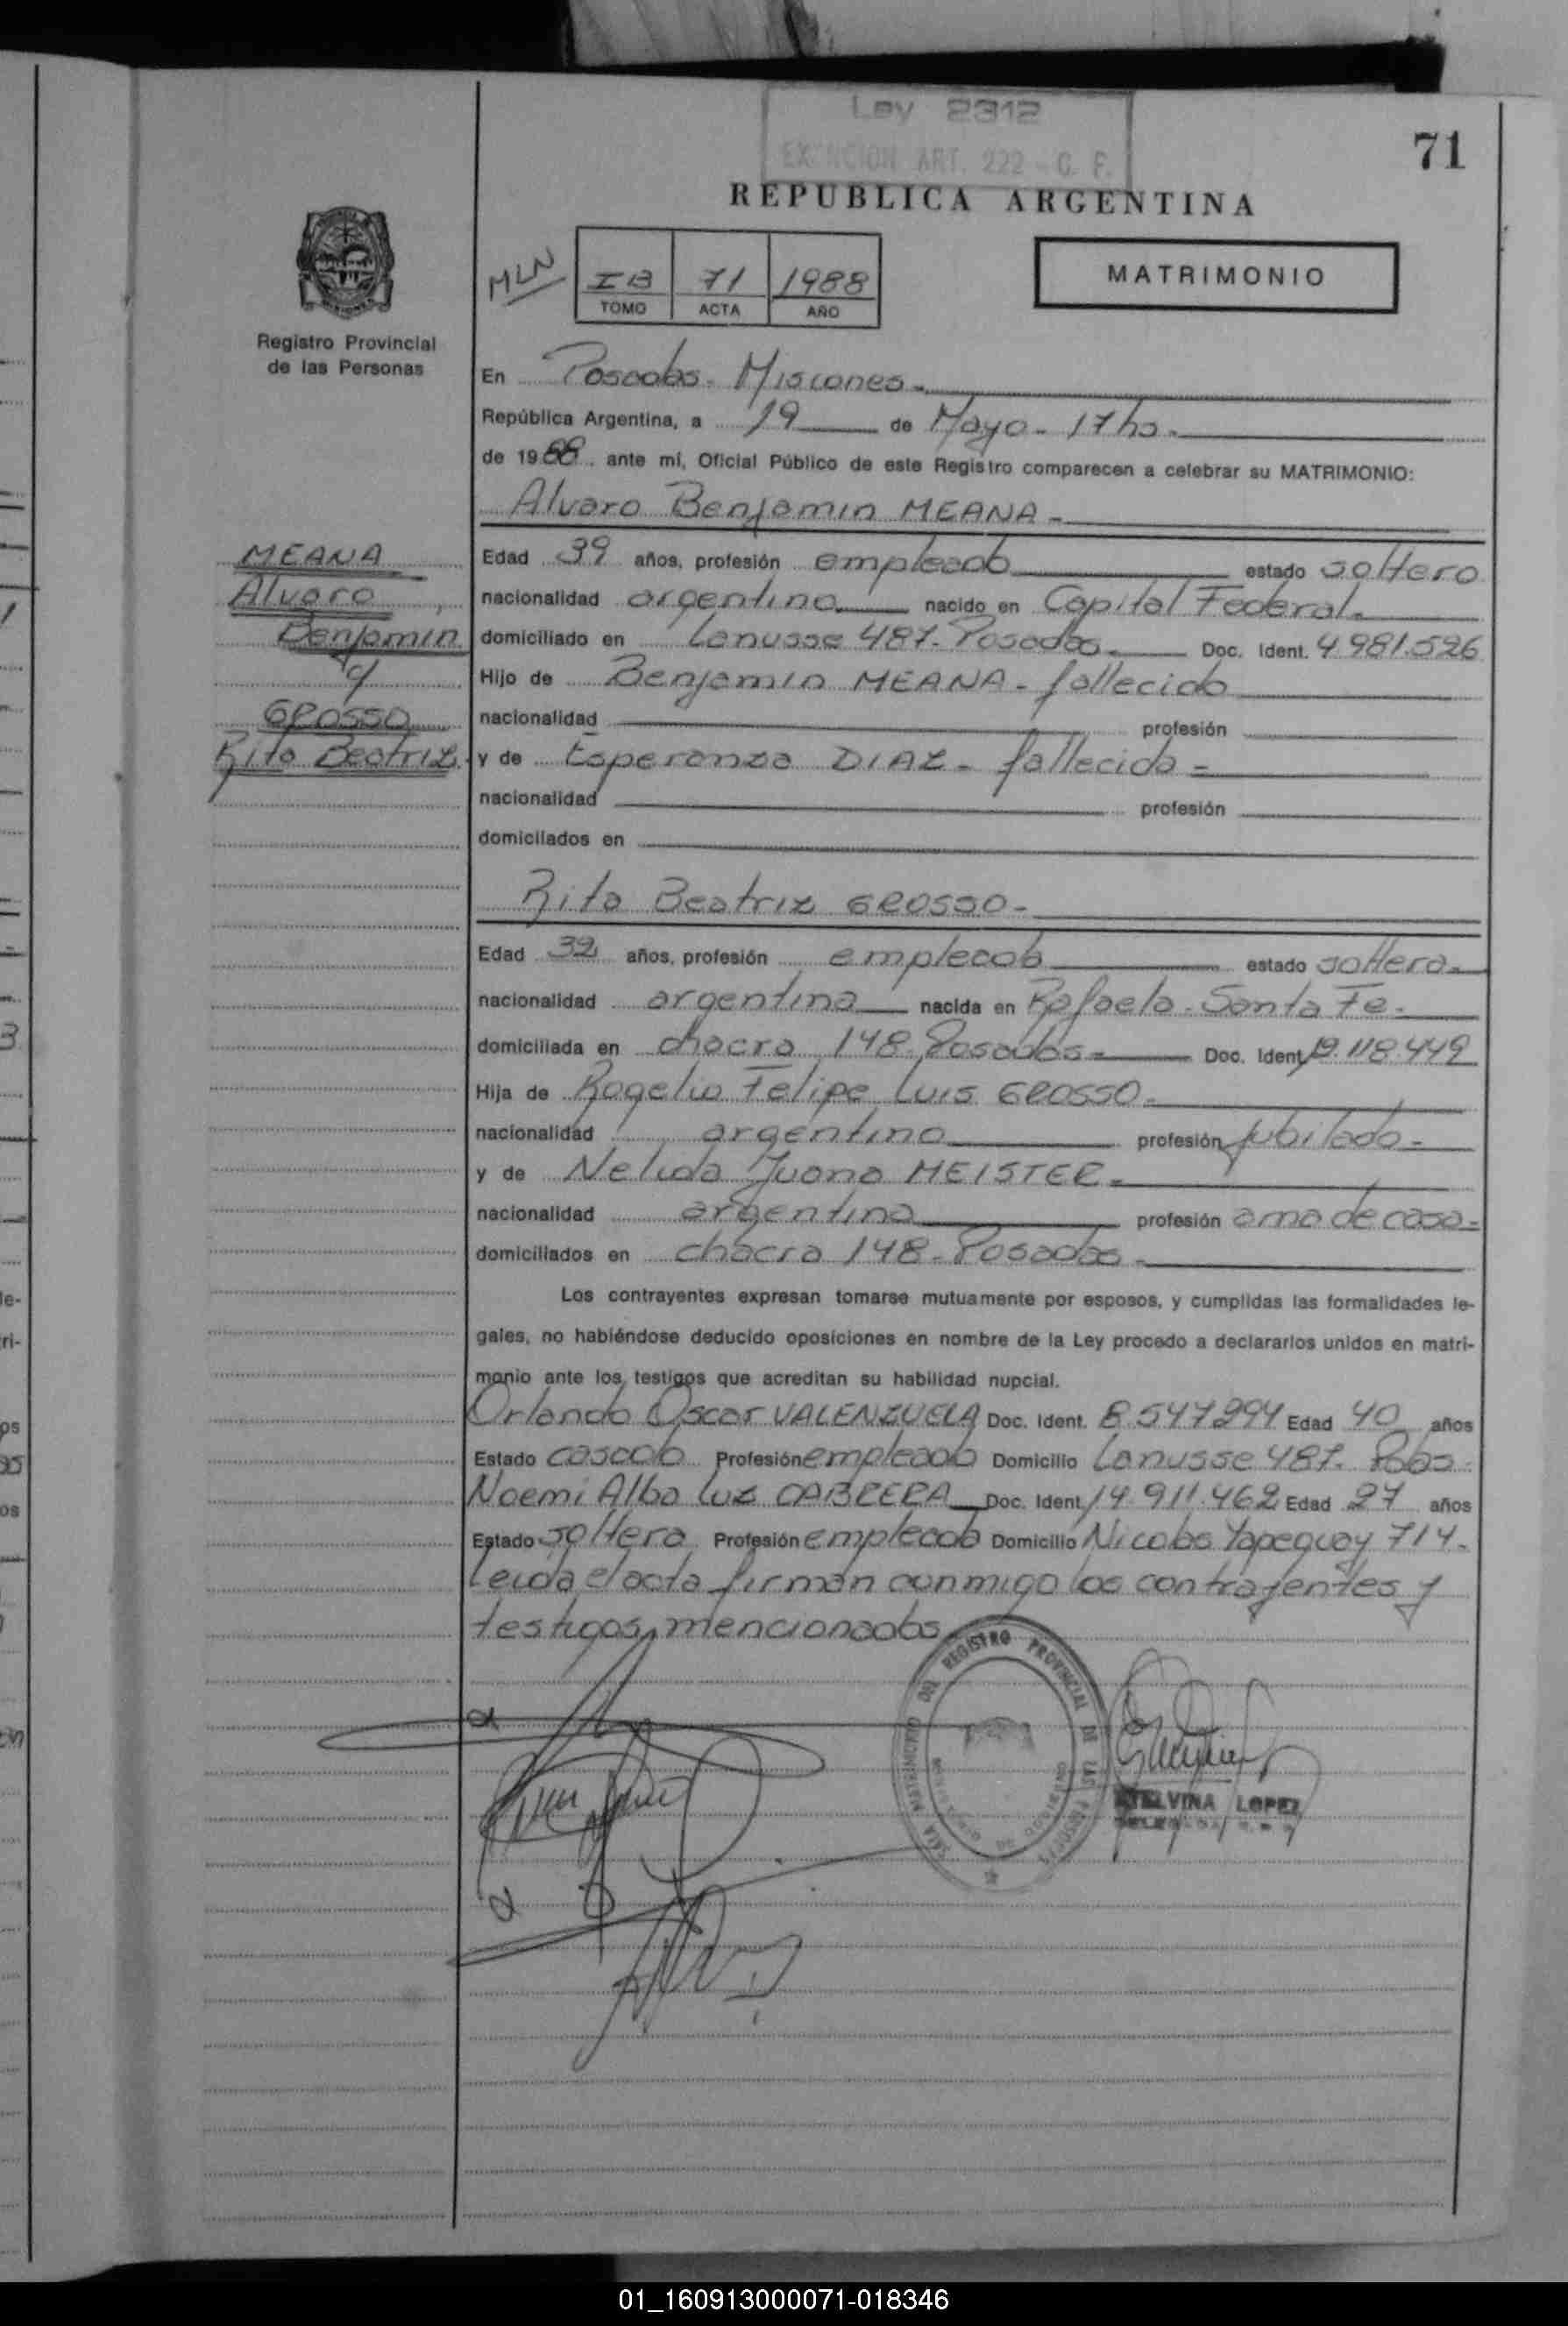 Ley 2312
EXENCION ART. 222 - C. F.
71
REPUBLICA ARGENTINA
MLN
IB 71 1988
TOMO ACTA AÑO
MATRIMONIO
Registro Provincial
de las Personas
En Posadas - Misiones -
República Argentina, a 19 de Mayo - 17 hs -
de 1988 ante mí, Oficial Público de este Registro comparecen a celebrar su MATRIMONIO:
Alvaro Benjamin MEANA -
MEANA
Alvaro
Benjamin
y
GROSSO
Rita Beatriz
Edad 39 años, profesión empleado estado soltero
nacionalidad argentina nacido en Capital Federal -
domiciliado en Lanusse 487 - Posadas - Doc. Ident. 4.981.526
Hijo de Benjamin MEANA - fallecido
nacionalidad profesión
y de Esperanza DIAZ - fallecida -
nacionalidad profesión
domiciliados en
Rita Beatriz GROSSO -
Edad 32 años, profesión empleada estado soltera -
nacionalidad argentina nacida en Rafaela - Santa Fe -
domiciliada en chacra 148 - Posadas - Doc. Ident. 12.118.449
Hija de Rogelio Felipe Luis GROSSO -
nacionalidad argentino profesión jubilado -
y de Nelida Juana MEISTER -
nacionalidad argentina profesión ama de casa -
domiciliados en chacra 148 - Posadas -
Los contrayentes expresan tomarse mutuamente por esposos, y cumplidas las formalidades le-
gales, no habiéndose deducido oposiciones en nombre de la Ley procedo a declararlos unidos en matri-
monio ante los testigos que acreditan su habilidad nupcial.
Orlando Oscar VALENZUELA Doc. Ident. 8.547.294 Edad 40 años
Estado casado Profesión empleado Domicilio Lanusse 487 - Pdas -
Noemi Alba Luz CABRERA Doc. Ident. 14.911.462 Edad 27 años
Estado soltera Profesión empleada Domicilio Nicolas Yapeguay 714 -
Leida el acta firman conmigo los contrayentes y
testigos mencionados
DEL REGISTRO PROVINCIAL DE LAS PERSONAS
SALA MATRIMONIO
ETELVINA LOPEZ
01_160913000071-018346